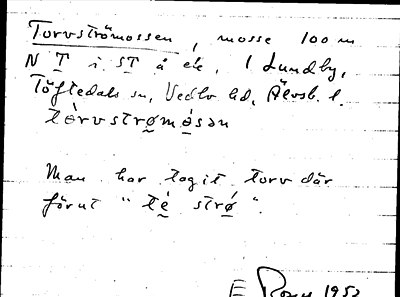 Torvströmossen, mosse 100 m
N T i ST å ek, 1 Lundby,
Töftedals sn, Vedbo hd, Älvsb. l.
tèrvstrømósən
Man har tagit torv där
förut " tè strǿ ".
E Rosn 1952